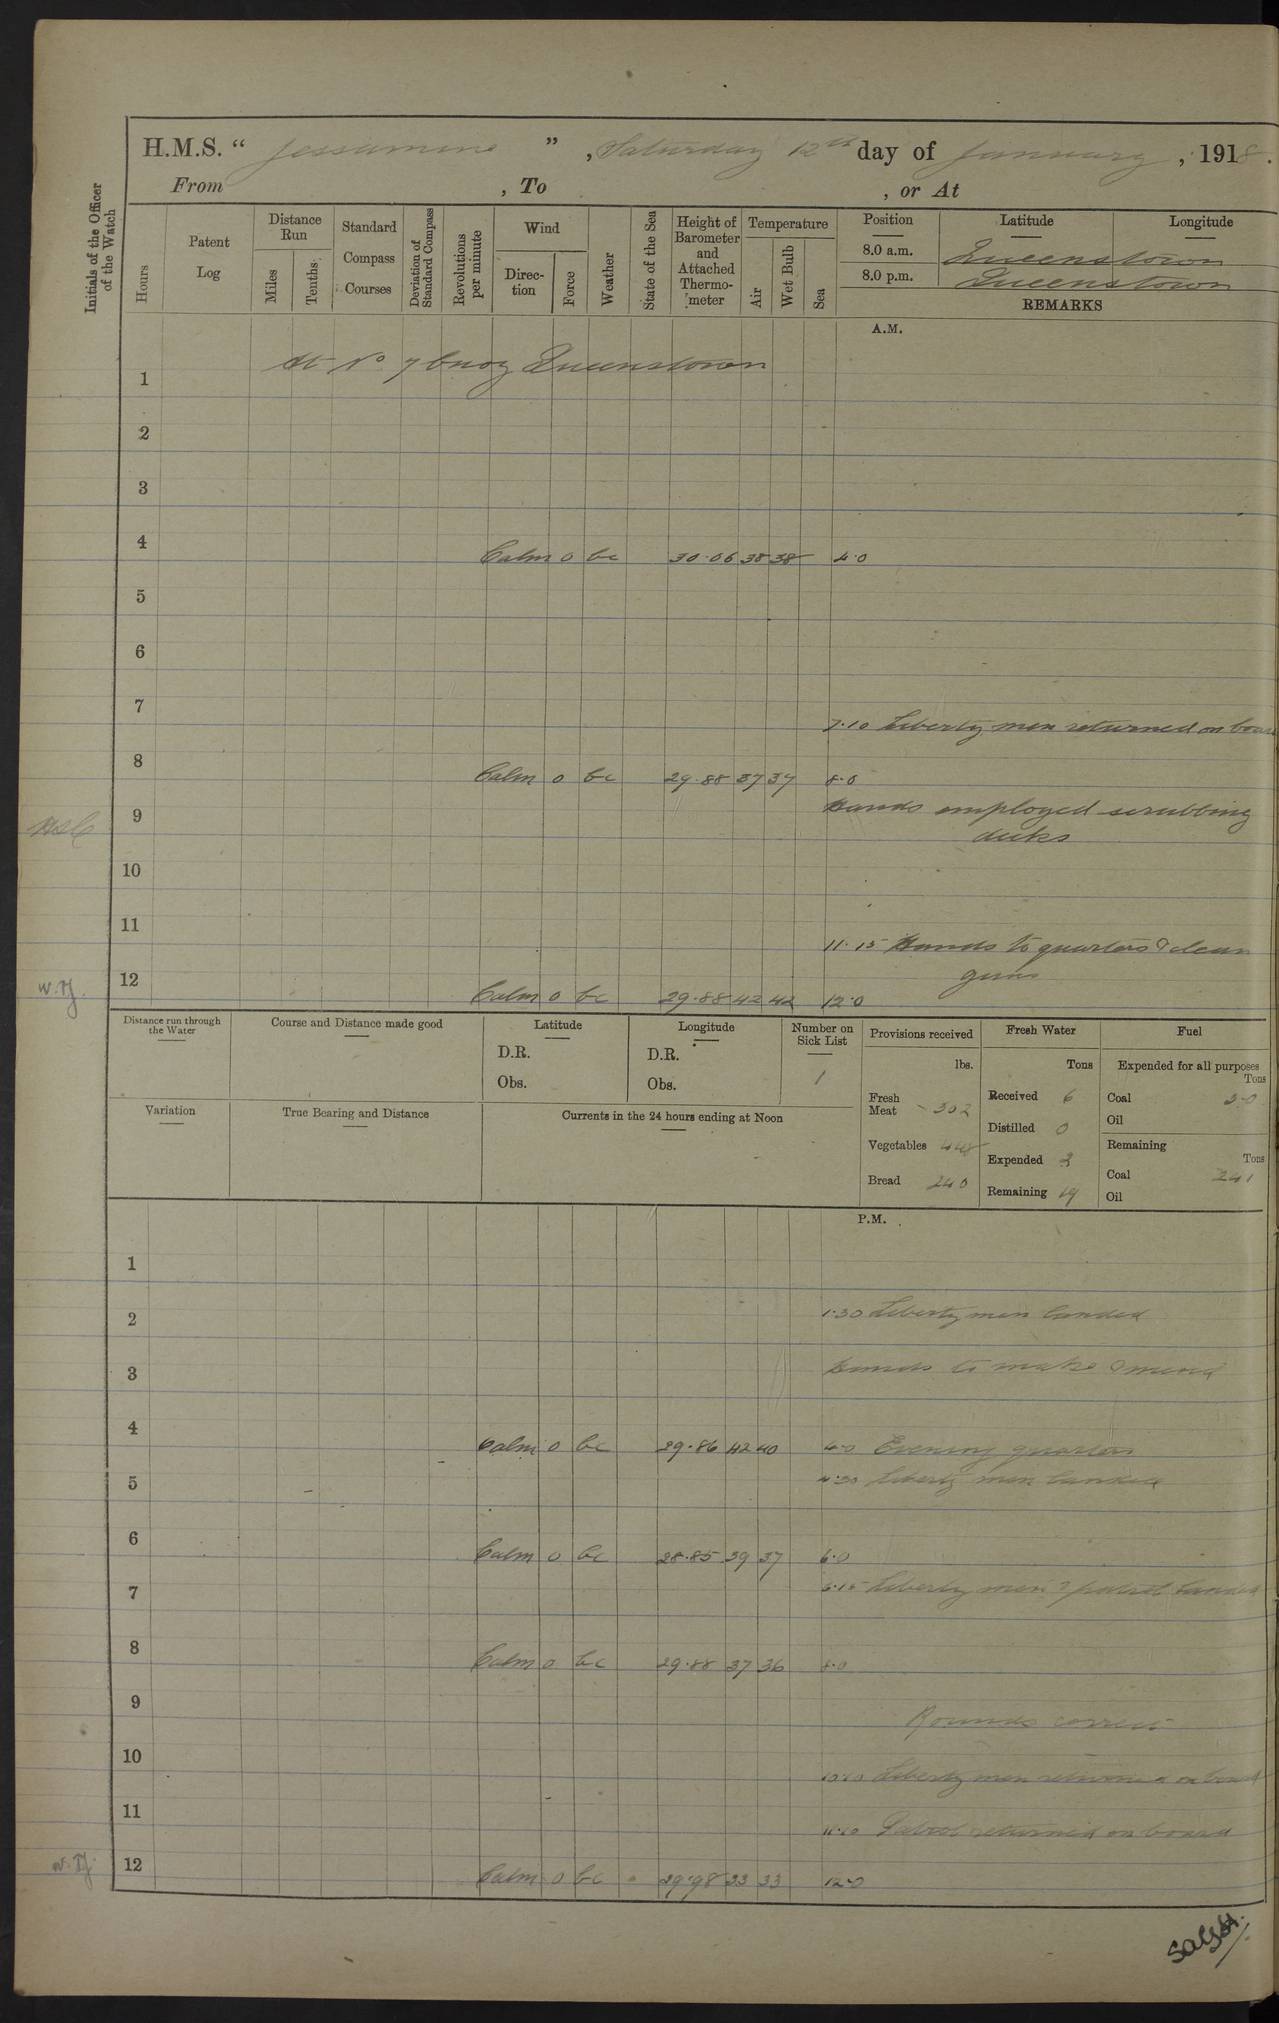 H.M.S. “ Jessamine ” , Saturday 12th day of January , 1918.
From , To , or At
Initials of the Officer of the Watch
Hours
Patent Log
Distance Run
Miles
Tenths
Standard Compass Courses
Deviation of Standard Compass
Revolutions per minute
Wind
Direction
Force
Weather
State of the Sea
Height of Barometer and Attached Thermometer
Temperature
Air
Wet Bulb
Sea
Position Latitude Longitude
8.0 a.m. Queenstown
8.0 p.m. Queenstown
REMARKS
A.M.
At No 7 buoy Queenstown
1
2
3
4 Calm 0 bc 30.06 38 38 4.0
5
6
7
7.10 Liberty men returned on board
8 Calm 0 bc 29.88 37 37 8.0
9 Hands employed scrubbing
decks
10
11
11.15 Hands to quarters & clean
guns
12 Calm 0 bc 29.88 42 42 12.0
Distance run through the Water
Course and Distance made good
Latitude
D.R.
Obs.
Longitude
D.R.
Obs.
Number on Sick List
1
Provisions received
lbs.
Fresh Meat 302
Vegetables 448
Bread 240
Fresh Water
Tons
Received 6
Distilled 0
Expended 3
Remaining 19
Fuel
Expended for all purposes
Tons
Coal
Oil
Remaining
Tons
Coal 241
Oil
Variation
True Bearing and Distance
Currents in the 24 hours ending at Noon
P.M.
1
2 1.30 Liberty men landed
3 Hands to make & mend
4 Calm 0 bc 29.86 42 40 4.0 Evening quarters
5 4.30 Liberty men landed
6 Calm 0 bc 28.85 39 37 6.0
7 6.15 Liberty men & patrol landed
8 Calm 0 bc 29.88 37 36 8.0
9
Rounds correct
10
10.10 Liberty men returned on board
11
11.10 Patrol returned on board
12 Calm 0 bc 29.98 33 33 12.0